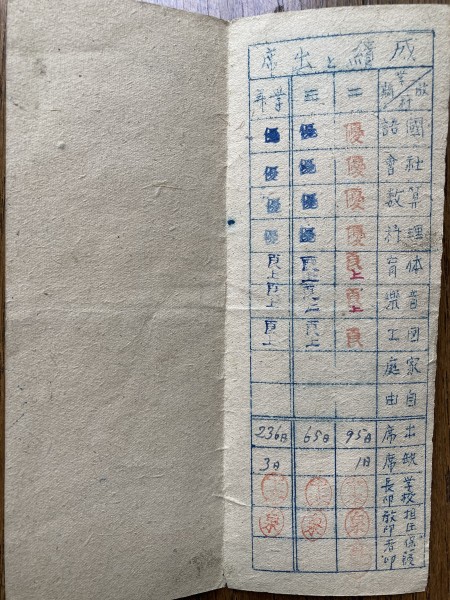 成績と出席
教科 学期 二 三 学年
國語 優 優 優
社會 優 優 優
算数 優 優 優
理科 優 優 優
体育 良上 良上 良上
音樂 良上 良上 良上
図工 良 良上 良上
家庭
自由
出席 95日 65日 236日
缺席 1日 3日
学校長印
担任教印
保護者印